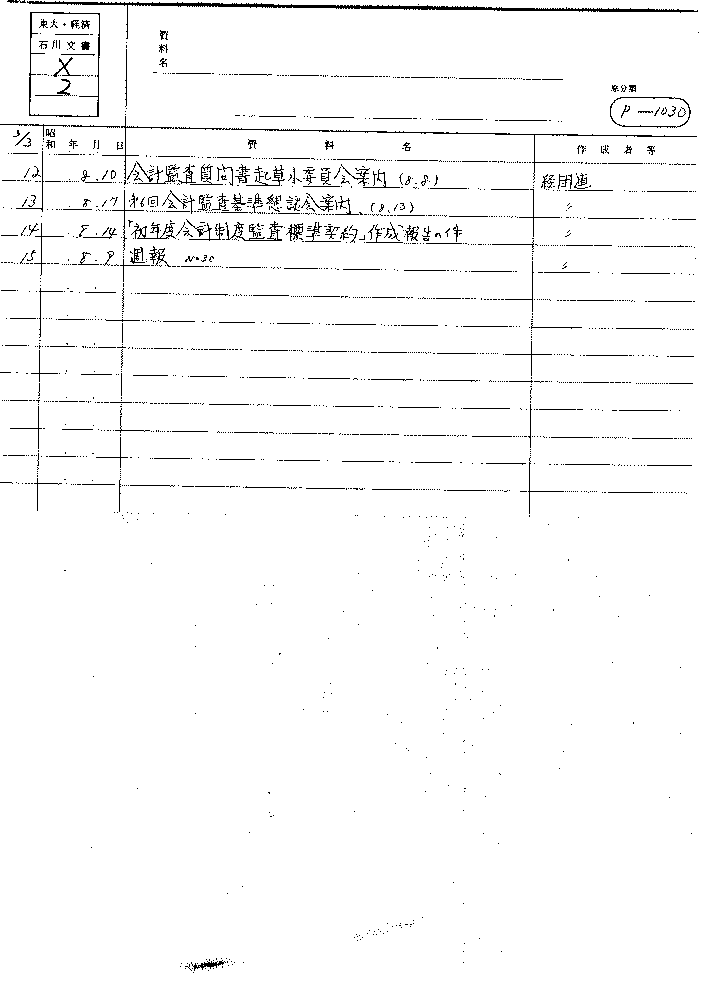 東大・経済
石川文書
X
2
資料名
原分類
P-1030
3/3 昭和 年 月 日 資料名 作成者等
12 8.10 会計監査質問書起草小委員会案内 (8.8) 経団連
13 8.17 第6回会計監査基準懇談会案内 (8.13) 〃
14 8.14 「初年度会計制度監査標準契約」作成報告の件 〃
15 8.9 週報 No30 〃